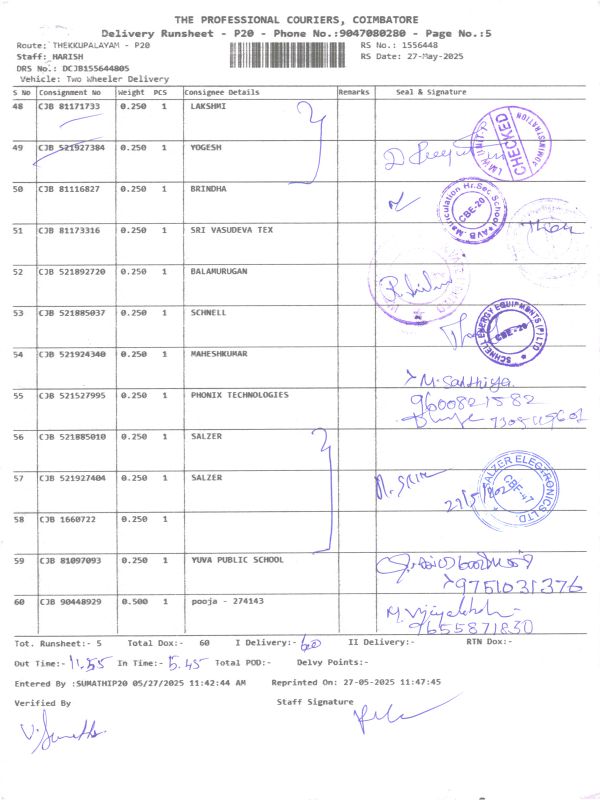 THE PROFESSIONAL COURIERS, COIMBATORE
Delivery Runsheet - P20 - Phone No.:9047080280 - Page No.:5
Route: THEKKUPALAYAM - P20 RS No.: 1556448
Staff: HARISH RS Date: 27-May-2025
DRS No.: DCJB155644805
Vehicle: Two Wheeler Delivery
S No Consignment No Weight PCS Consignee Details Remarks Seal & Signature
48 CJB 81171733 0.250 1 LAKSHMI
CHECKED
49 CJB 521927384 0.250 1 YOGESH
50 CJB 81116827 0.250 1 BRINDHA
AVB. Matriculation Hr.Sec.School CBE-20
51 CJB 81173316 0.250 1 SRI VASUDEVA TEX
52 CJB 521892720 0.250 1 BALAMURUGAN
53 CJB 521885037 0.250 1 SCHNELL
SCHNELL ENERGY EQUIPMENTS (P) LTD CBE-20
54 CJB 521924340 0.250 1 MAHESHKUMAR
M. Sandhiya
9600821582
55 CJB 521527995 0.250 1 PHONIX TECHNOLOGIES
56 CJB 521885010 0.250 1 SALZER
57 CJB 521927404 0.250 1 SALZER
SALZER ELECTRONICS LTD. CBE-47
58 CJB 1660722 0.250 1
59 CJB 81097093 0.250 1 YUVA PUBLIC SCHOOL
9751031376
60 CJB 90448929 0.500 1 pooja - 274143
9655871830
Tot. Runsheet:- 5 Total Dox:- 60 I Delivery:- 60 II Delivery:- RTN Dox:-
Out Time:- 11.55 In Time:- 5.45 Total POD:- Delvy Points:-
Entered By :SUMATHIP20 05/27/2025 11:42:44 AM Reprinted On: 27-05-2025 11:47:45
Verified By Staff Signature